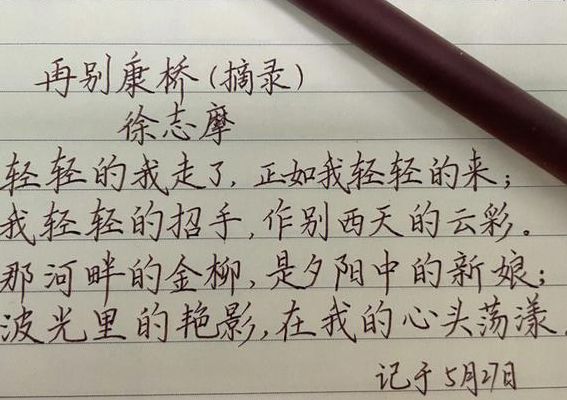 再别康桥(摘录)
徐志摩
轻轻的我走了,正如我轻轻的来;
我轻轻的招手,作别西天的云彩。
那河畔的金柳,是夕阳中的新娘;
波光里的艳影,在我的心头荡漾.
记于5月27日